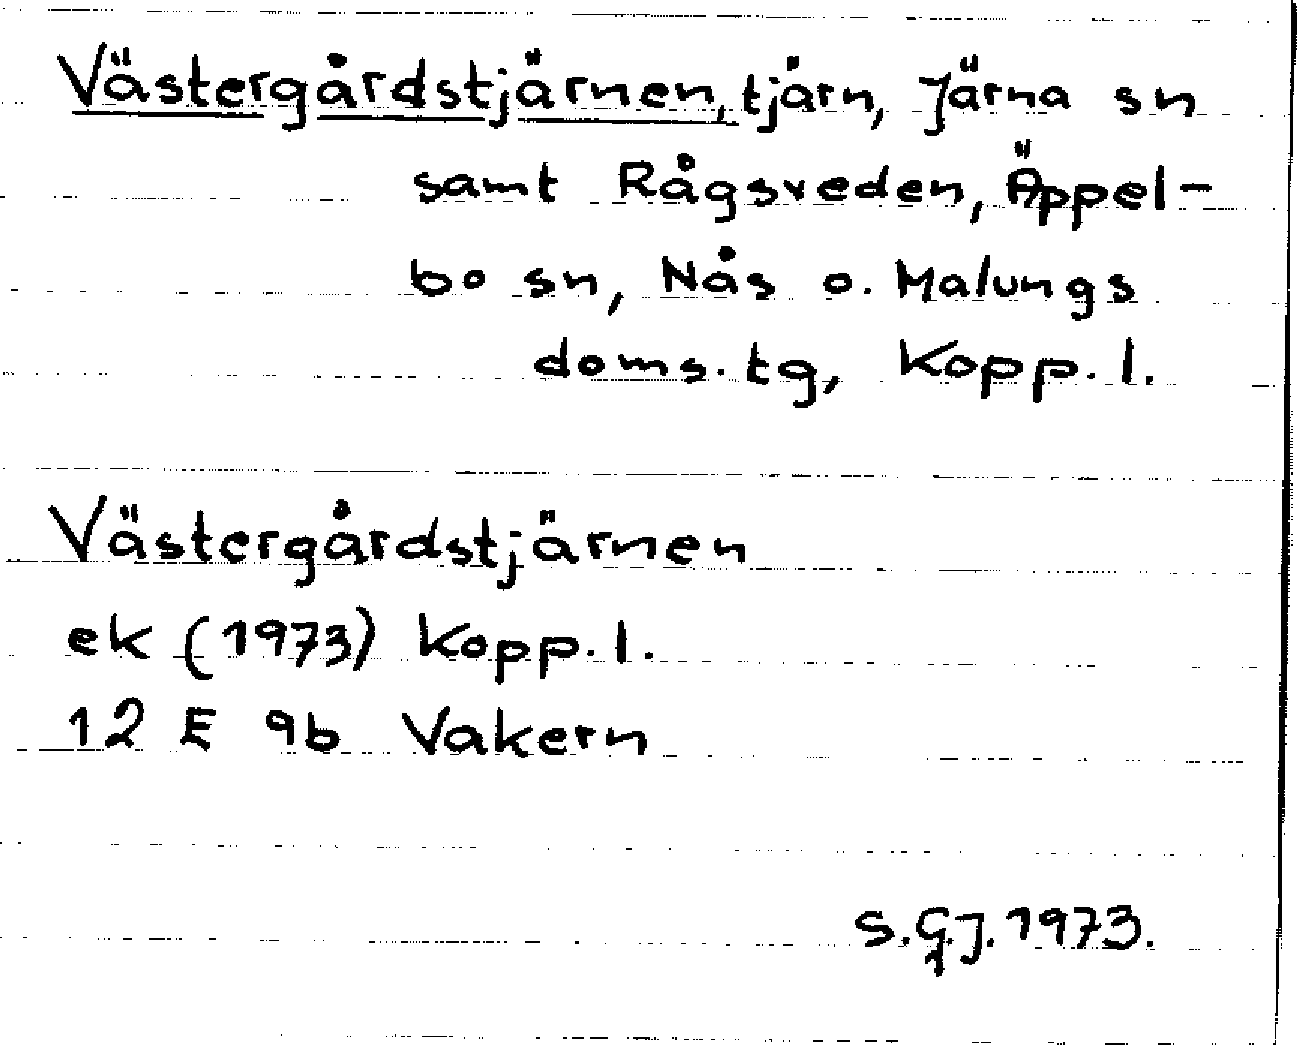 Västergårdstjärnen, tjärn, Järna sn
samt Rågsveden, Äppel-
bo sn, Nås o. Malungs
doms.tg, Kopp.l.
Västergårdstjärnen
ek (1973) Kopp.l.
12 E 9b Vakern
S.G.J. 1973.